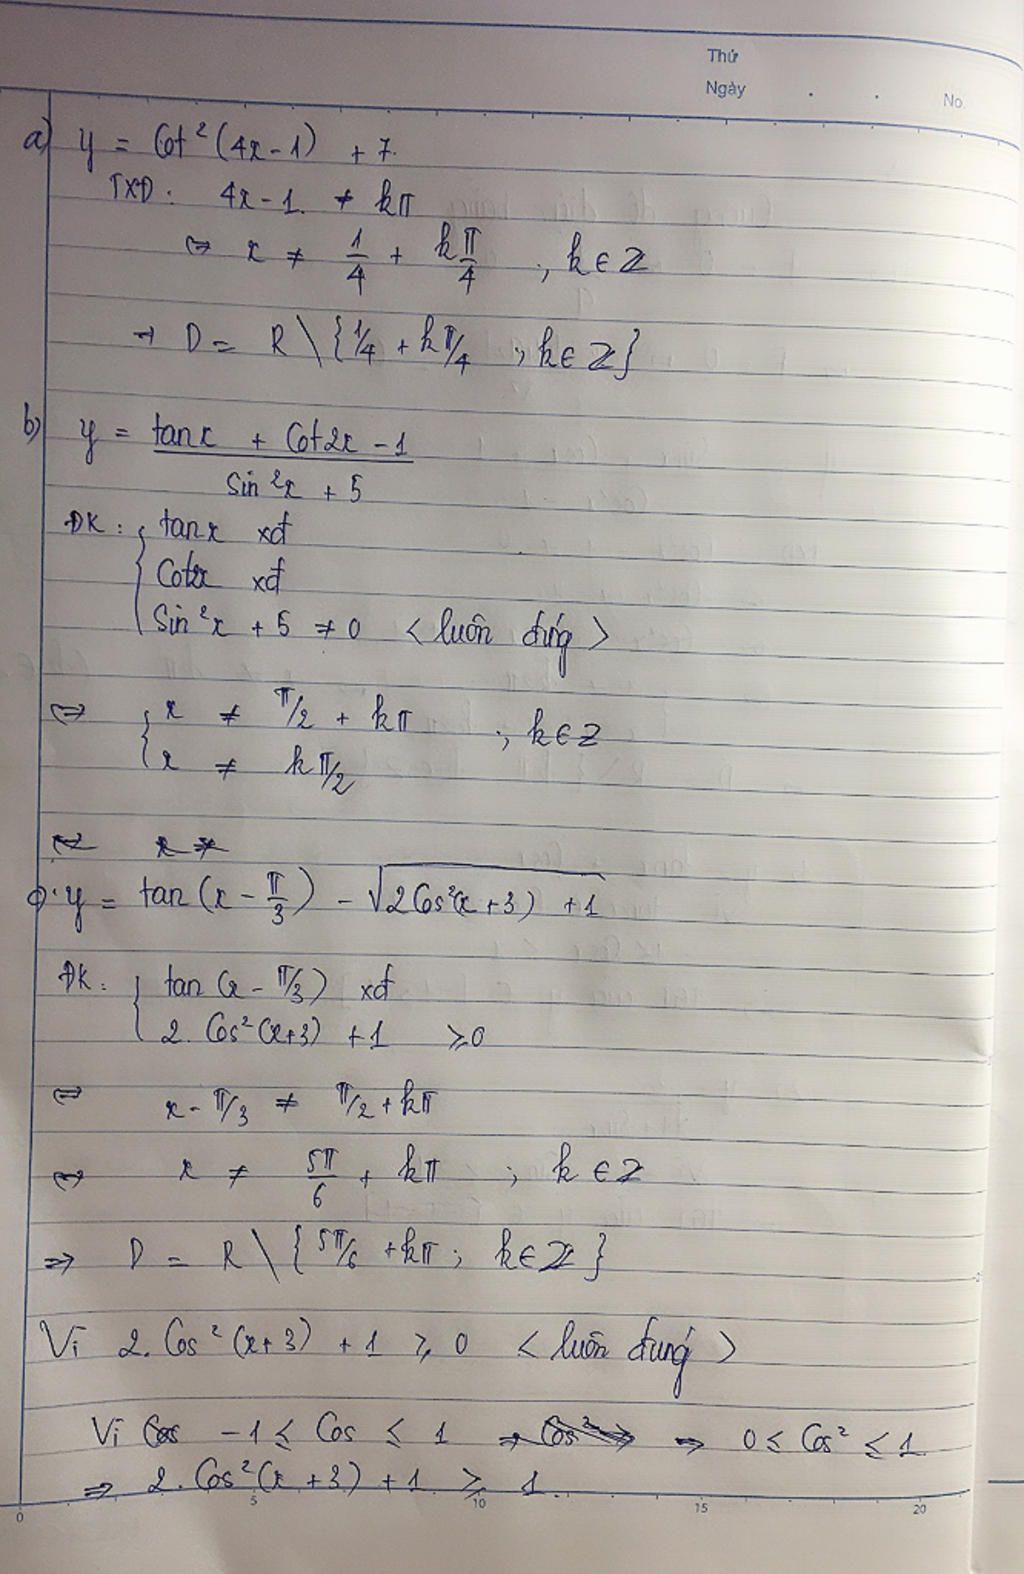 Thứ
Ngày . . No
a) y = Cot²(4x-1) + 7.
TXĐ: 4x-1 ≠ kπ
⇔ x ≠ 1/4 + kπ/4 , k∈Z
→ D = R \ {1/4 + kπ/4 ; k∈Z}
b) y = (tanx + Cot2x - 1)/(sin²x + 5)
ĐK: { tanx xđ
Cot2x xđ
Sin²x + 5 ≠ 0 <luôn đúng>
⇔ { x ≠ π/2 + kπ ; k∈Z
x ≠ kπ/2
y = tan(x - π/3) - √(2Cos²(x+3) + 1)
ĐK: { tan(x - π/3) xđ
2.Cos²(x+3) + 1 ≥ 0
⇔ x - π/3 ≠ π/2 + kπ
⇔ x ≠ 5π/6 + kπ ; k ∈ Z
⇒ D = R \ { 5π/6 + kπ ; k∈Z }
Vì 2.Cos²(x+3) + 1 ≥ 0 <luôn đúng>
Vì -1 ≤ Cos ≤ 1 ⇒ 0 ≤ Cos² ≤ 1
⇒ 2.Cos²(x+3) + 1 ≥ 1.
0 5 10 15 20